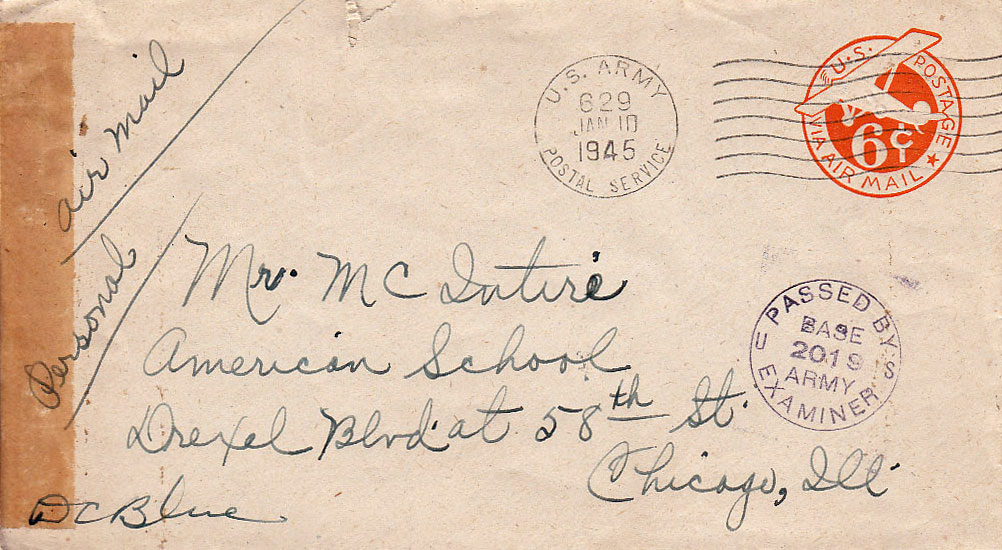 air mail
Personal
U.S. ARMY
629
JAN 10
1945
POSTAL SERVICE
U.S. POSTAGE
6¢
VIA AIR MAIL
Mr. McIntire
American School
Drexel Blvd. at 58th St.
Chicago, Ill
PASSED BY
BASE
2019
ARMY
U S EXAMINER
DCBlue